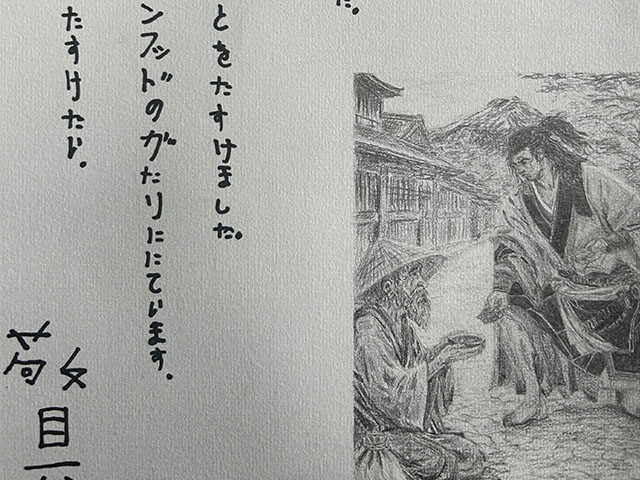 た。
とをたすけました。
ンフッドのがたりににています。
たすけたい。
敬